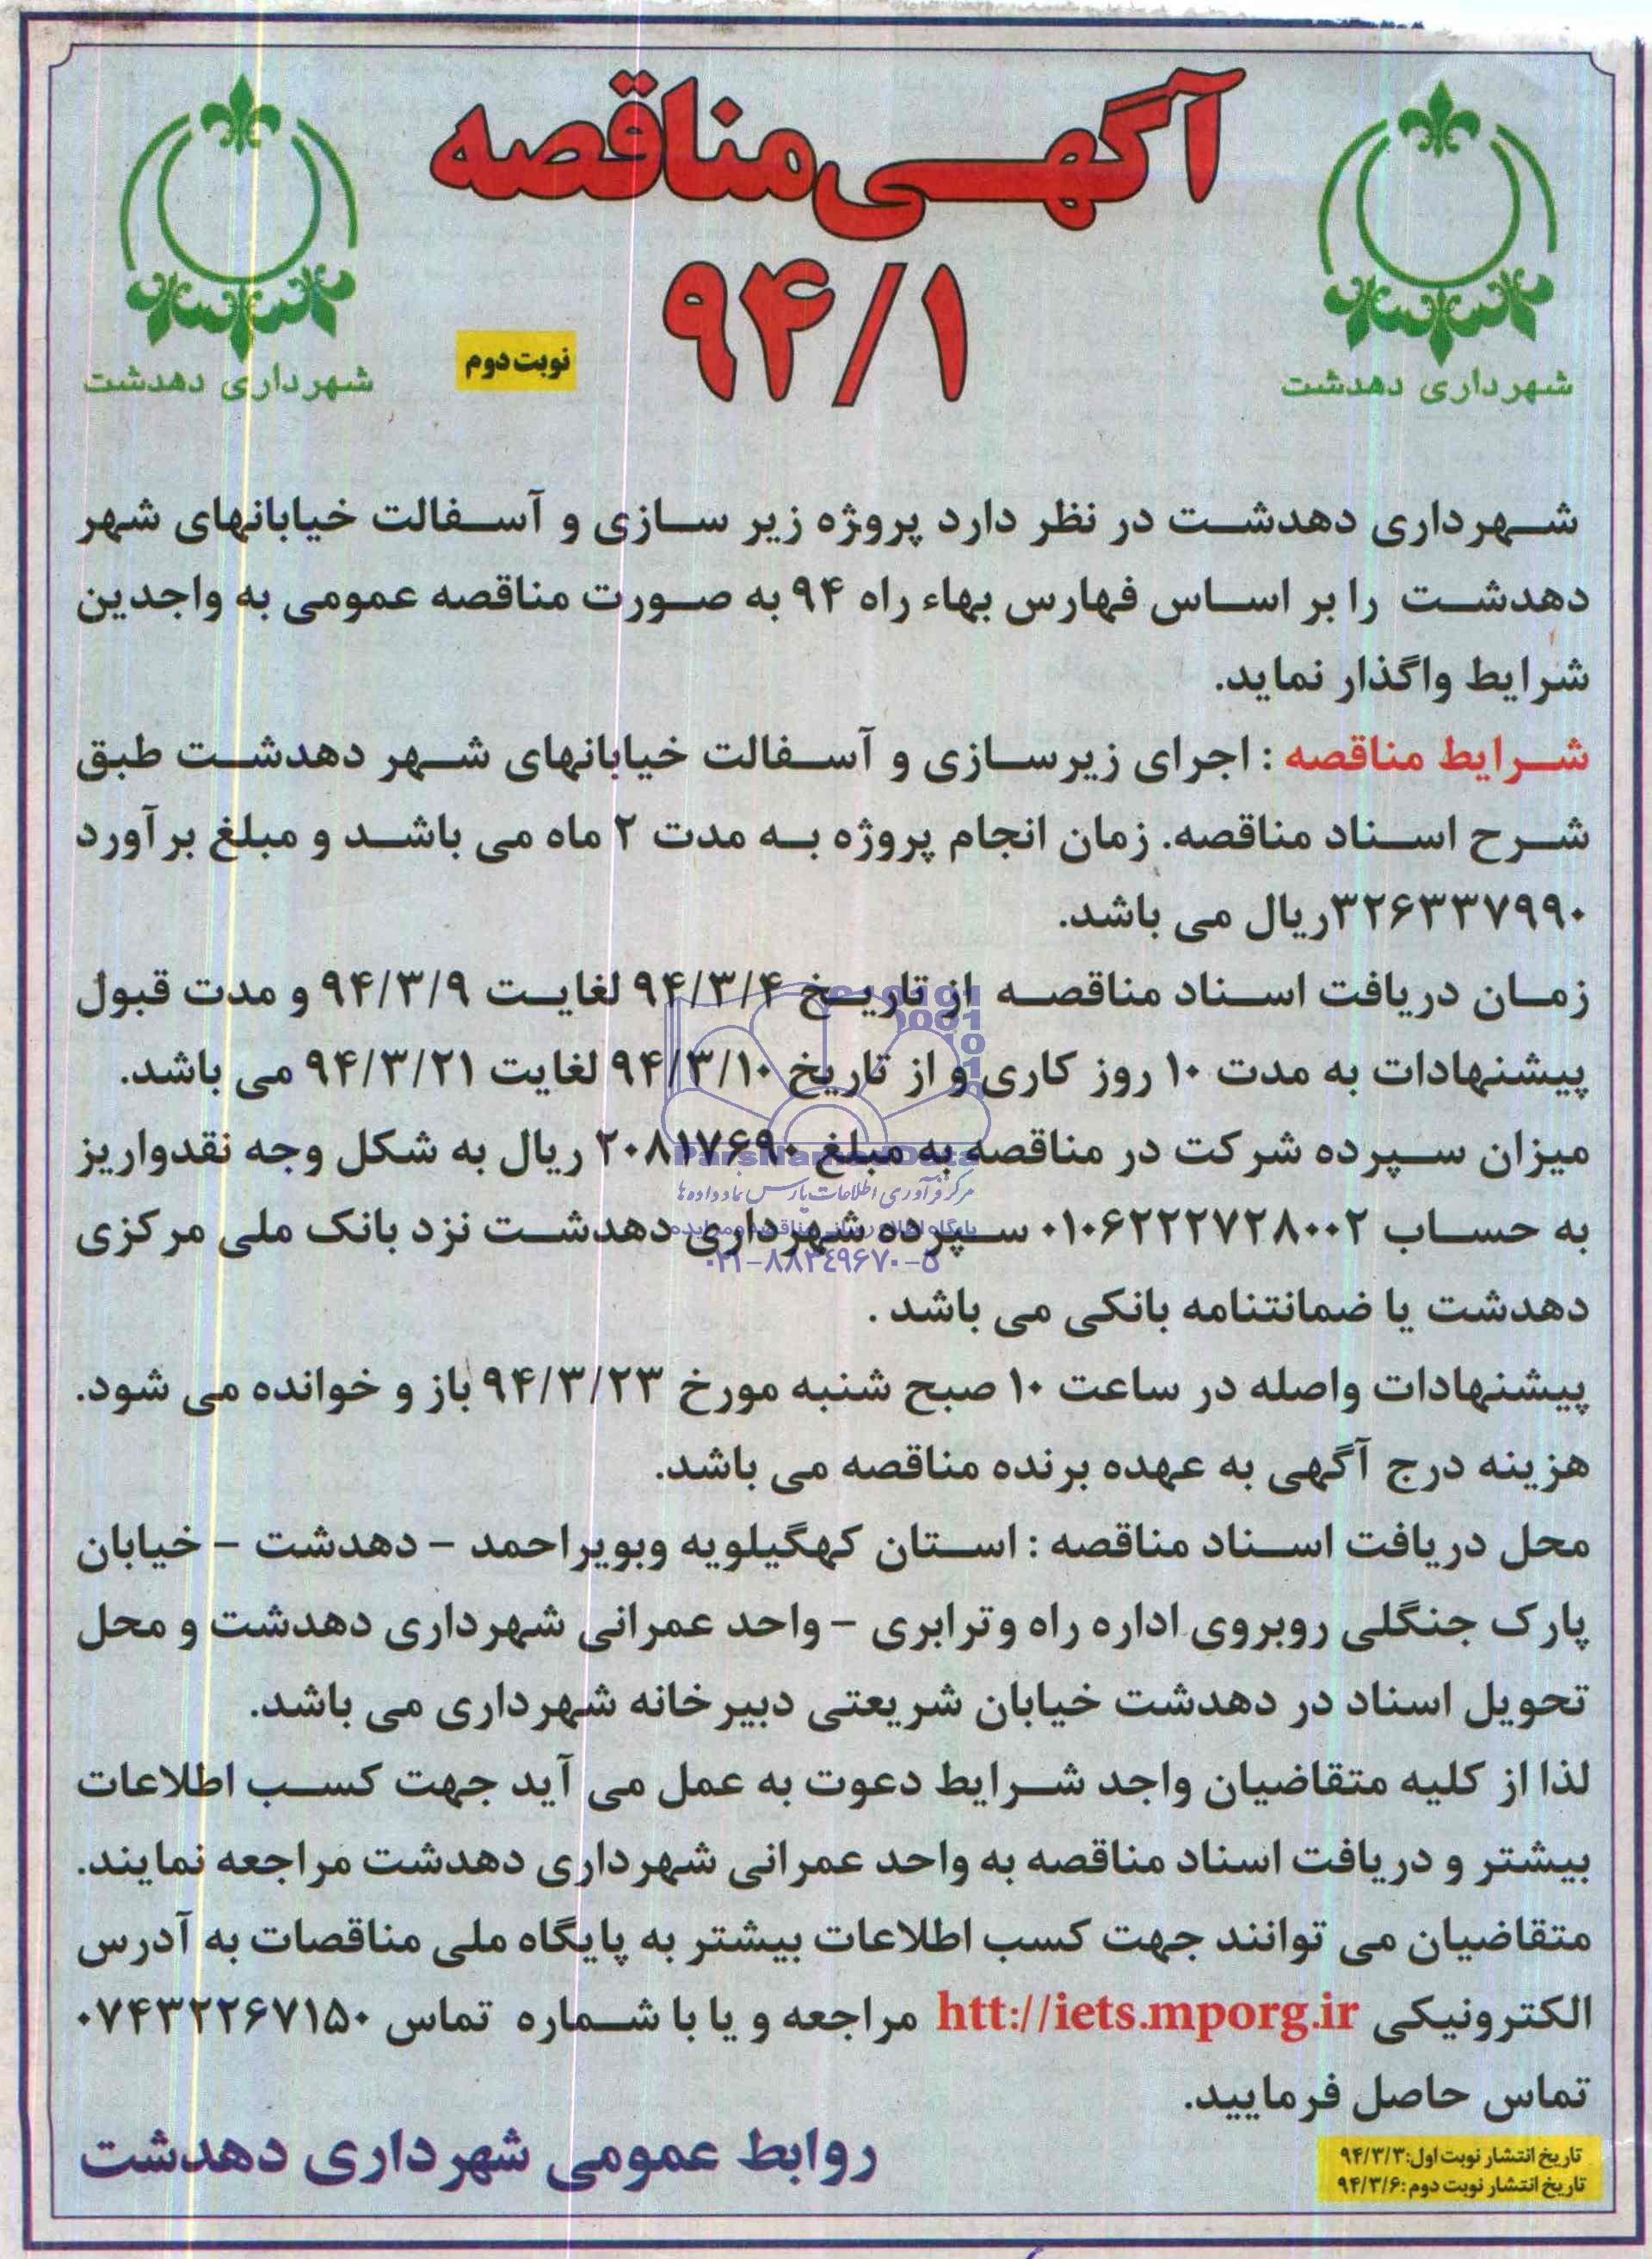 آگهی مناقصه
۹۴/۱
نوبت دوم
شهرداری دهدشت
شهرداری دهدشت
شهرداری دهدشت در نظر دارد پروژه زیر سازی و آسفالت خیابانهای شهر
دهدشت را بر اساس فهارس بهاء راه ۹۴ به صورت مناقصه عمومی به واجدین
شرایط واگذار نماید.
شرایط مناقصه : اجرای زیرسازی و آسفالت خیابانهای شهر دهدشت طبق
شرح اسناد مناقصه. زمان انجام پروژه به مدت ۲ ماه می باشد و مبلغ برآورد
۳۲۶۳۳۷۹۹۰ریال می باشد.
زمان دریافت اسناد مناقصه از تاریخ ۹۴/۳/۴ لغایت ۹۴/۳/۹ و مدت قبول
پیشنهادات به مدت ۱۰ روز کاری و از تاریخ ۹۴/۳/۱۰ لغایت ۹۴/۳/۲۱ می باشد.
میزان سپرده شرکت در مناقصه به مبلغ ۲۰۸۱۷۶۹۰ ریال به شکل وجه نقدواریز
به حساب ۰۱۰۶۲۲۲۷۲۸۰۰۲ سپرده شهرداری دهدشت نزد بانک ملی مرکزی
دهدشت یا ضمانتنامه بانکی می باشد .
پیشنهادات واصله در ساعت ۱۰ صبح شنبه مورخ ۹۴/۳/۲۳ باز و خوانده می شود.
هزینه درج آگهی به عهده برنده مناقصه می باشد.
محل دریافت اسناد مناقصه : استان کهگیلویه وبویراحمد - دهدشت - خیابان
پارک جنگلی روبروی اداره راه وترابری - واحد عمرانی شهرداری دهدشت و محل
تحویل اسناد در دهدشت خیابان شریعتی دبیرخانه شهرداری می باشد.
لذا از کلیه متقاضیان واجد شرایط دعوت به عمل می آید جهت کسب اطلاعات
بیشتر و دریافت اسناد مناقصه به واحد عمرانی شهرداری دهدشت مراجعه نمایند.
متقاضیان می توانند جهت کسب اطلاعات بیشتر به پایگاه ملی مناقصات به آدرس
الکترونیکی htt://iets.mporg.ir مراجعه و یا با شماره تماس ۰۷۴۳۲۲۶۷۱۵۰
تماس حاصل فرمایید.
روابط عمومی شهرداری دهدشت
تاریخ انتشار نوبت اول:۹۴/۳/۳
تاریخ انتشار نوبت دوم:۹۴/۳/۶
ParsNamadData
مرکز فرآوری اطلاعات پارس نماد داده ها
پایگاه اطلاع رسانی مناقصه و مزایده
۰۲۱-۸۸۳۴۹۶۷۰-۵